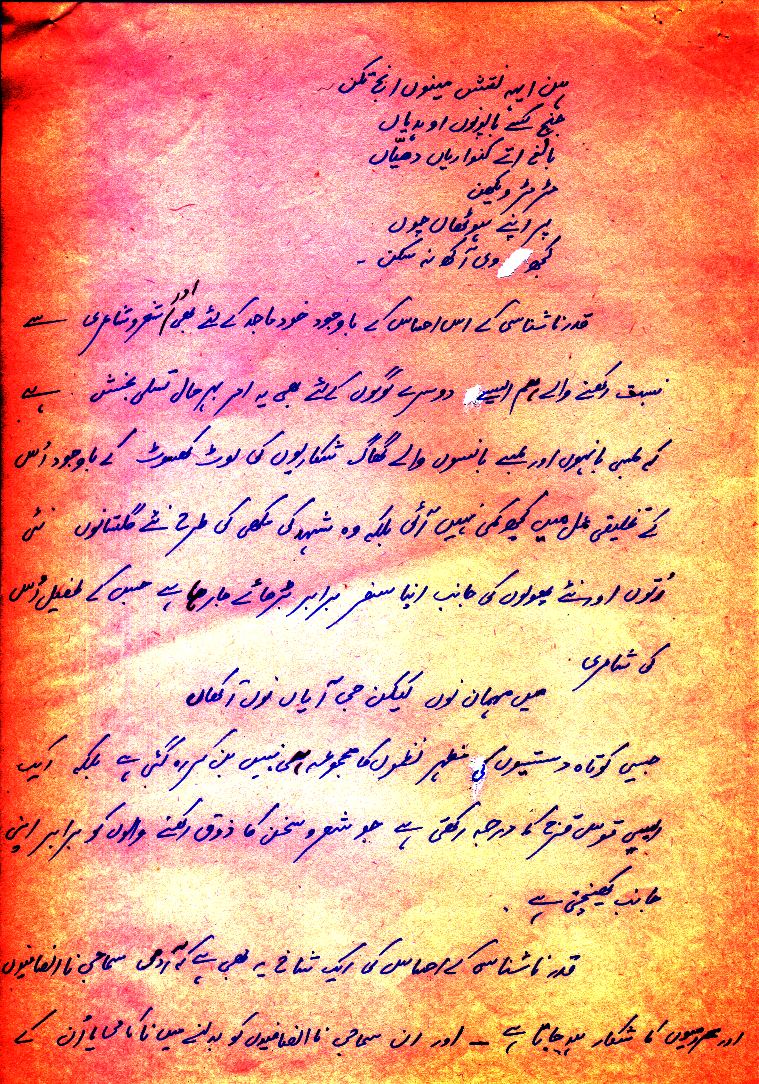 ہن ایہہ نقش مینوں انج تکن
جنج کسے بالڑیاں اوہدیاں
بالغ اتے کنواریاں دھیّاں
مٹر مٹر ویکھن
پر اپنے ہوٹھاں چوں
کجھ وی آکھ نہ سکن ۔
قدر ناشناسی کے اس احساس کے باوجود خود ماجد کے لئے بھی اور شعر و شاعری سے
نسبت رکھنے والے ہم ایسے دوسرے لوگوں کے لئے بھی یہ امر بہر حال تسلی بخش ہے
کہ لمبی بانہوں اور لمبے بانسوں والے گھاگ شکاریوں کی لوٹ کھسوٹ کے باوجود اُس
کے تخلیقی عمل میں کچھ کمی نہیں آئی بلکہ وہ شہد کی مکھی کی طرح نئے گلستانوں نئی
رُتوں اور نئے پھولوں کی جانب اپنا سفر برابر بڑھائے جا رہا ہے جس کے طفیل اُس
کی شاعری
میں مہمان نوں لیکن جی آیاں نوں آکھاں
جیسی کوتاہ دستیوں کی مظہر نظموں کا مجموعہ ہی نہیں بن کر رہ گئی ہے بلکہ ایک
ایسی قوس قزح کا درجہ رکھتی ہے جو شعر و سخن کا ذوق رکھنے والوں کو برابر اپنی
جانب کھینچتی ہے ۔
قدر ناشناسی کے احساس کی ایک شاخ یہ بھی ہے کہ آدمی سماجی ناانصافیوں
اور محرومیوں کا شکار ہو جاتا ہے ۔ اور ان سماجی ناانصافیوں کو بدلنے میں ناکامی یا اُن کے